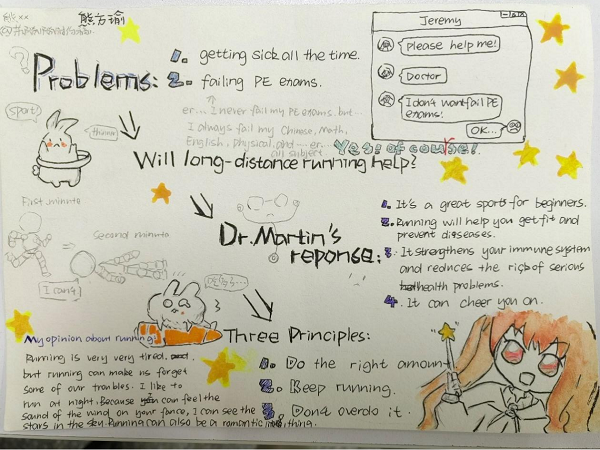 熊方瑜
Problems:
1. getting sick all the time.
2. failing PE exams.
Jeremy
Please help me!
Doctor
I don't want fail PE
exams!
OK...
er... I never fail my PE exams. but...
I always fail my Chinese, Math,
English, Physical, and ... er...
all subject
sport!
Yes! of course!
Will long-distance running help?
First minute
Second minute
I can't
Dr.Martin's
reponse:
1. It's a great sports for beginners.
2. Running will help you get fit and
prevent diseases.
3. It strengthens your immune system
and reduces the risk of serious
health problems.
4. It can cheer you on.
My opinion about running
Running is very very tired.
but running can make us forget
some of our troubles. I like to
run at night. Because can feel the
sound of the wind on your fance, I can see the
stars in the sky. Running can also be a romantic thing.
Three Principles:
1. Do the right amount
2. Keep running.
3. Dong overdo it.